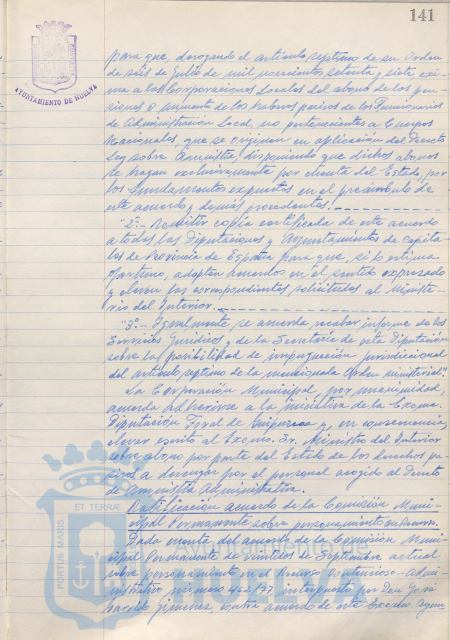 141
AYUNTAMIENTO DE HUELVA
para que, derogando el artículo septimo de su Orden
de seis de Julio de mil novecientos setenta y siete, exi-
ma a las Corporaciones Locales del abono de las pen-
siones o aumento de los haberes pasivos de los funcionarios
de Administración Local, no pertenecientes a Cuerpos
Nacionales, que se originen en aplicación del Decreto
Ley sobre Amnistía, disponiendo que dichos abonos
se hagan exclusivamente por cuenta del Estado, por
los fundamentos expuestos en el preámbulo de
este acuerdo y demás procedentes.
"2º.- Remitir copia certificada de este acuerdo
a todas las Diputaciones y Ayuntamientos de Capita-
les de Provincia de España para que, si lo estiman
oportuno, adopten acuerdos en el sentido expresado
y eleven las correspondientes solicitudes al Ministe-
rio del Interior.
"3º.- Igualmente se acuerda recabar informe de los
Servicios Jurídicos y de la Secretaría de esta Diputación
sobre la posibilidad de impugnación jurisdiccional
del artículo septimo de la mencionada Orden ministerial".
La Corporación Municipal, por unanimidad,
acuerda adherirse a la iniciativa de la Excma.
Diputación Foral de Guipuzcoa y, en consecuencia,
elevar escrito al Excmo. Sr. Ministro del Interior
sobre abono por parte del Estado de los derechos pa-
sivos a devengar por el personal acogido al Decreto
de Amnistía Administrativa.
Ratificación acuerdo de la Comisión Muni-
cipal Permanente sobre personamiento en recurso.
Dada cuenta del acuerdo de la Comisión Muni-
cipal Permanente de veintiseis de Septiembre actual
sobre personamiento en el Recurso Contencioso-Admi-
nistrativo número 462/77 interpuesto por Don José
Jimenez, contra acuerdo de este Excmo. Ayun-
ET TERRÆ
PORTUS MARIS